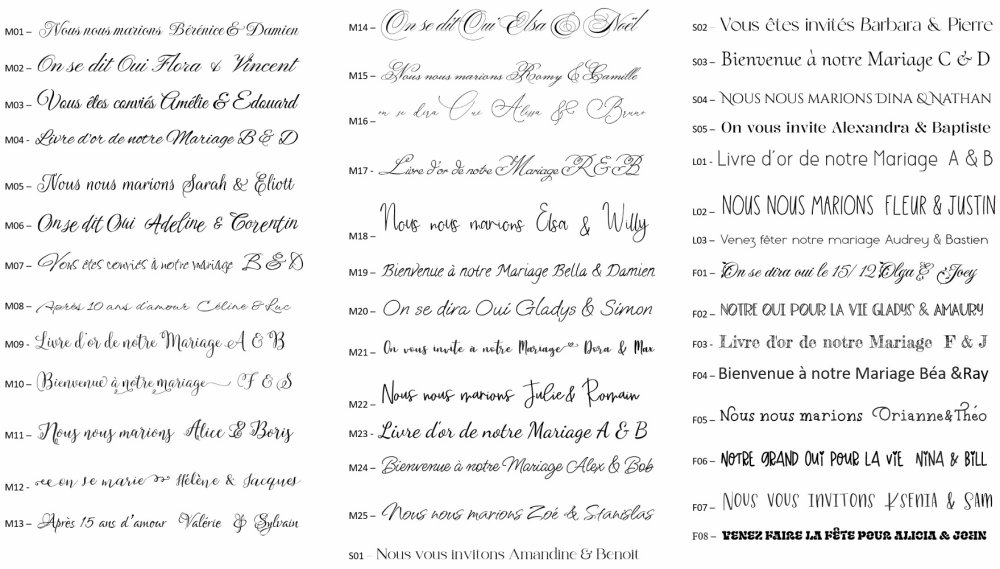 M01 – Nous nous marions Bérénice & Damien
M02 – On se dit Oui Flora & Vincent
M03 – Vous êtes conviés Amélie & Edouard
M04 - Livre d'or de notre Mariage B & D
M05 – Nous nous marions Sarah & Eliott
M06 – On se dit Oui Adeline & Corentin
M07 – Vous êtes conviés à notre mariage B & D
M08 – Après 10 ans d'amour Céline & Luc
M09 - Livre d'or de notre Mariage A & B
M10 – Bienvenue à notre mariage F & S
M11 – Nous nous marions Alice & Boris
M12 - on se marie Hélène & Jacques
M13 – Après 15 ans d'amour Valérie & Sylvain
M14 – On se dit Oui Elsa & Noël
M15 – Nous nous marions Romy & Camille
M16 – on se dira Oui Alissa & Bruno
M17 - Livre d'or de notre Mariage R & B
M18 – Nous nous marions Elsa & Willy
M19 – Bienvenue à notre Mariage Bella & Damien
M20 – On se dira Oui Gladys & Simon
M21 – On vous invite à notre Mariage Dora & Max
M22 – Nous nous marions Julie & Romain
M23 - Livre d'or de notre Mariage A & B
M24 – Bienvenue à notre Mariage Alex & Bob
M25 – Nous nous marions Zoé & Stanislas
S01 – Nous vous invitons Amandine & Benoit
S02 – Vous êtes invités Barbara & Pierre
S03 – Bienvenue à notre Mariage C & D
S04 – NOUS NOUS MARIONS DINA & NATHAN
S05 – On vous invite Alexandra & Baptiste
L01 - Livre d'or de notre Mariage A & B
L02 – NOUS NOUS MARIONS FLEUR & JUSTIN
L03 – Venez fêter notre mariage Audrey & Bastien
F01 – On se dira oui le 15/ 12 Olga & Joey
F02 – NOTRE OUI POUR LA VIE GLADYS & AMAURY
F03 - Livre d'or de notre Mariage F & J
F04 – Bienvenue à notre Mariage Béa &Ray
F05 – Nous nous marions Orianne&Théo
F06 – NOTRE GRAND OUI POUR LA VIE NINA & BILL
F07 – NOUS VOUS INVITONS KSENIA & SAM
F08 – VENEZ FAIRE LA FÊTE POUR ALICIA & JOHN